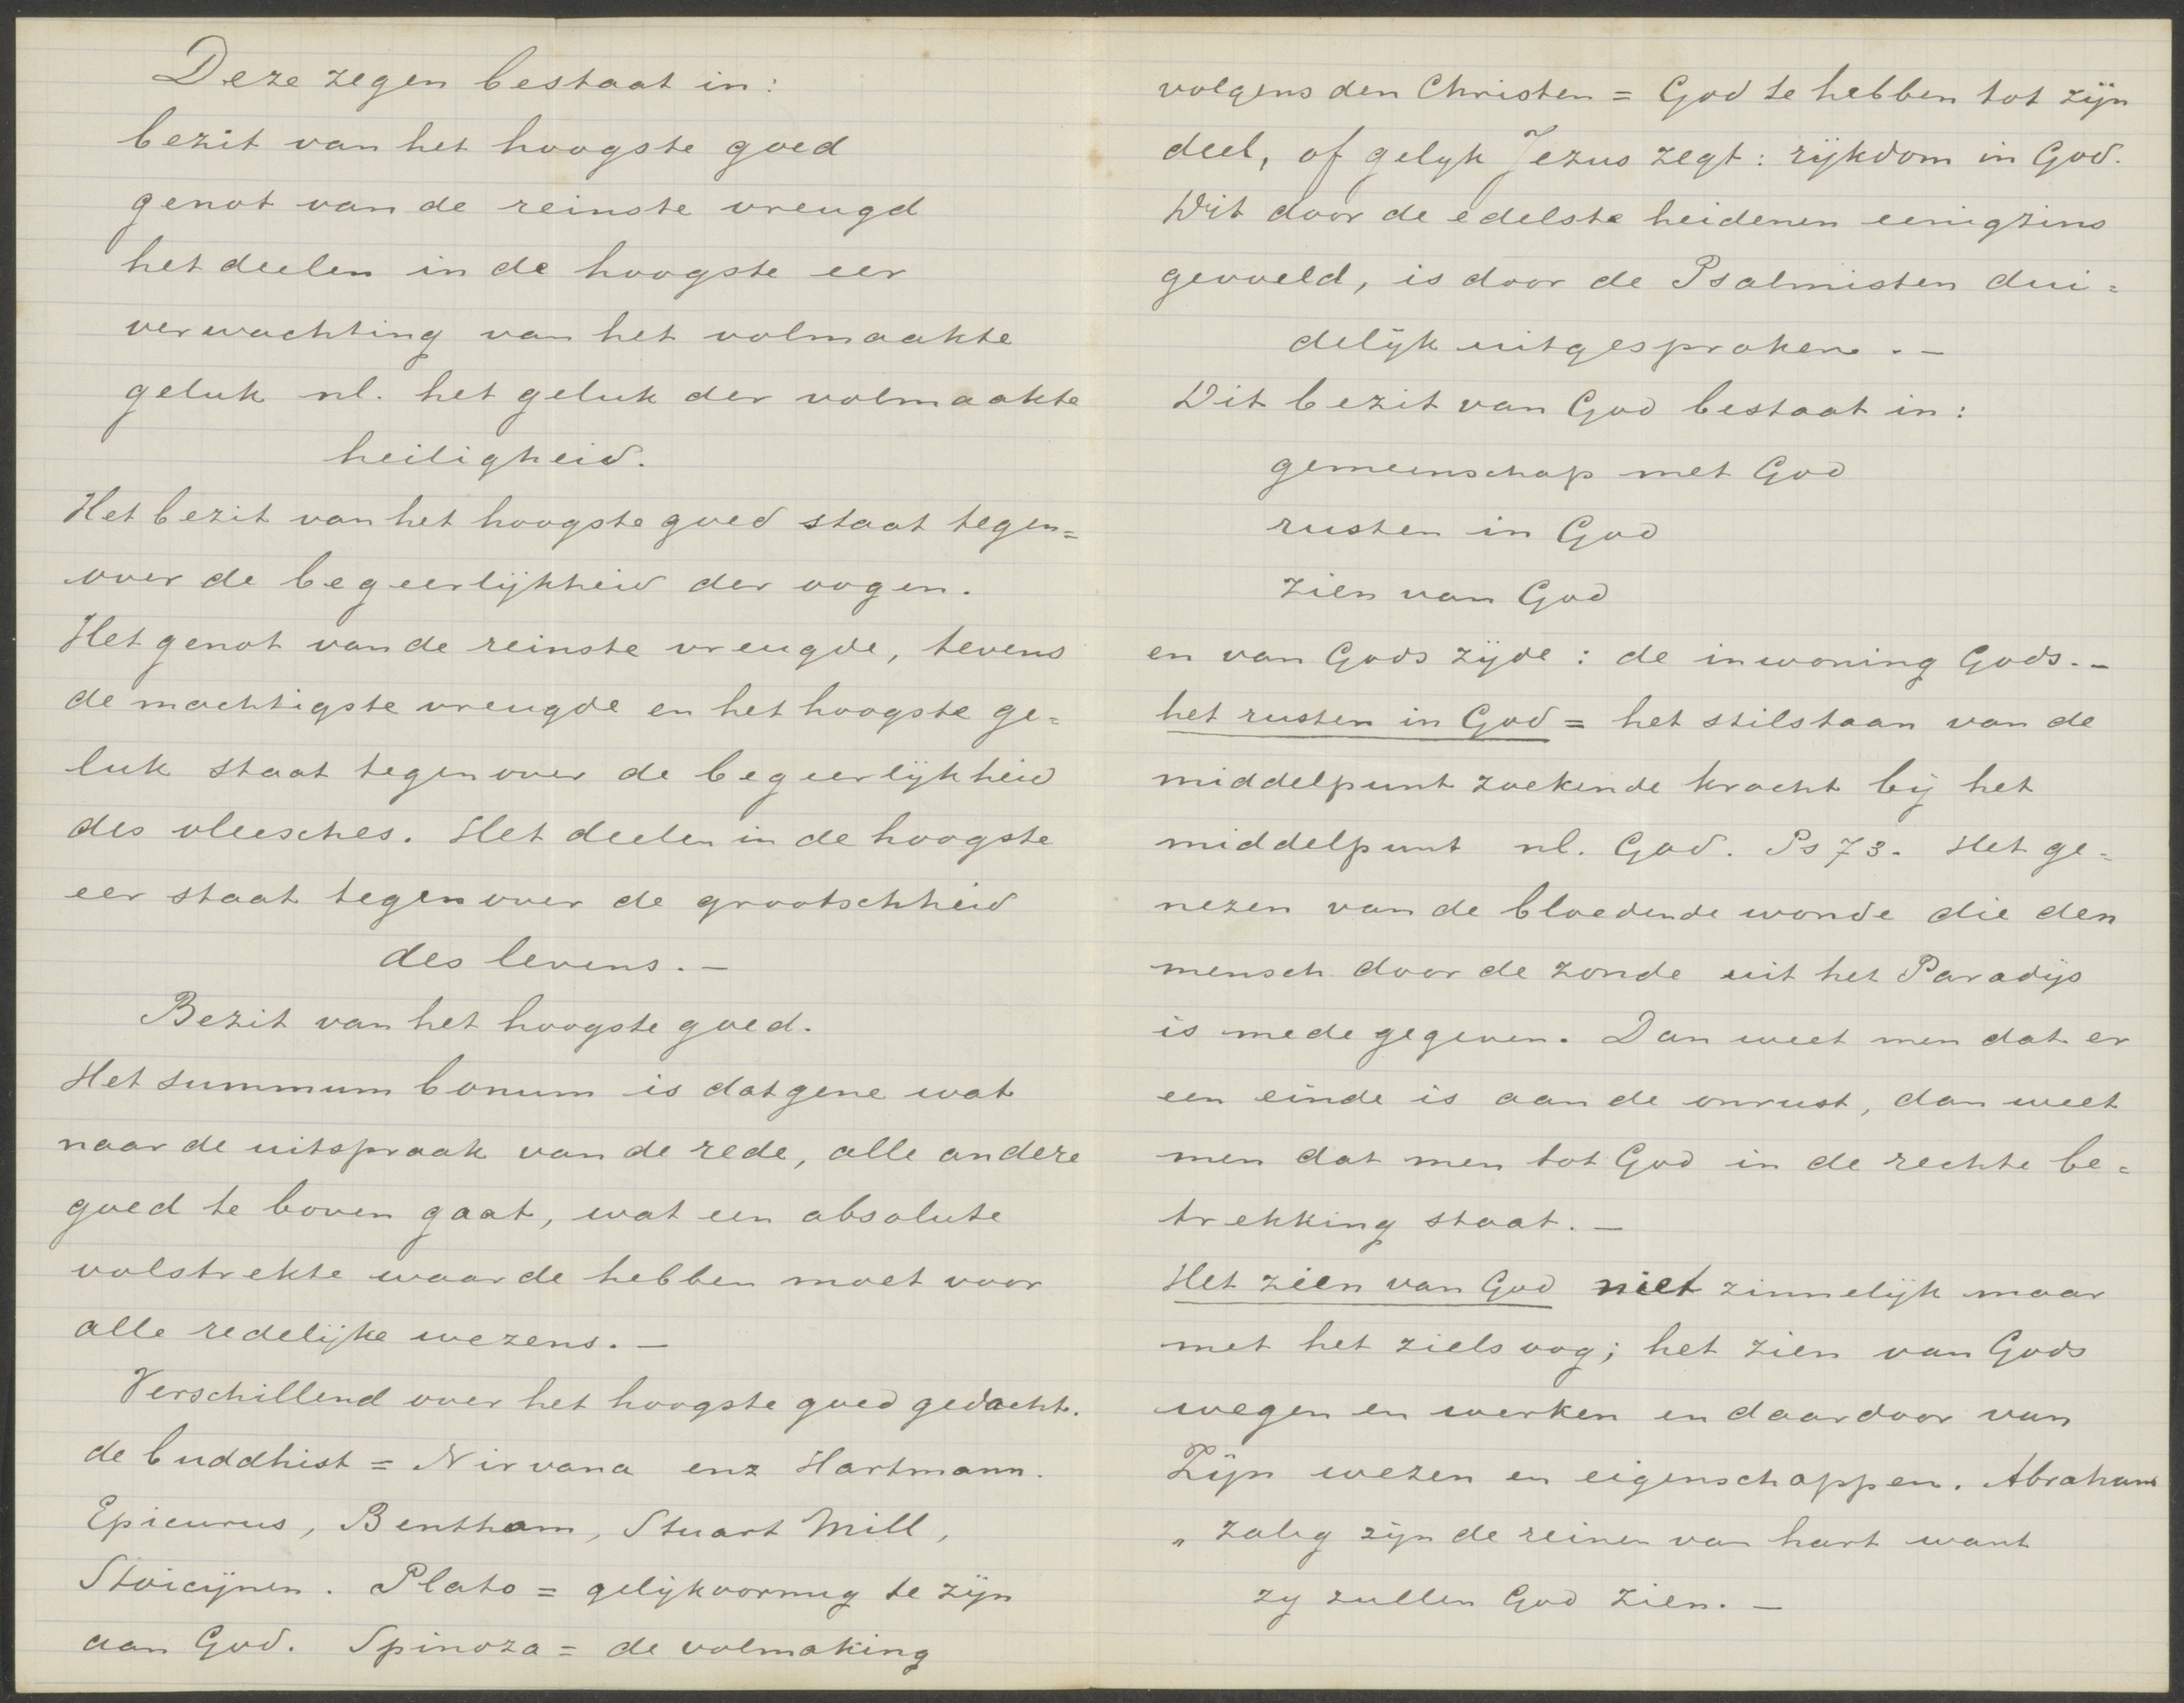 Deze zegen bestaat in:
bezit van het hoogste goed
genot van de reinste vreugd
het deelen in de hoogste eer
verwachting van het volmaakte
geluk nl. het geluk der volmaakte
heiligheid.
Het bezit van het hoogste goed staat tegen=
over de begeerlijkheid der oogen.
Het genot van de reinste vreugde, tevens
de machtigste vreugde en het hoogste ge=
luk staat tegenover de begeerlijkheid
des vleesches. Het deelen in de hoogste
eer staat tegenover de grootschheid
des levens. —
Bezit van het hoogste goed.
Het summum bonum is datgene wat
naar de uitspraak van de rede, alle andere
goed te boven gaat, wat een absolute
volstrekte waarde hebben moet voor
alle redelijke wezens. —
Verschillend over het hoogste goed gedacht.
de buddhist = Nirvana enz Hartmann.
Epicurus, Bentham, Stuart Mill,
Stoicijnen. Plato = gelijkvormig te zijn
aan God. Spinoza = de volmaking
volgens den Christen = God te hebben tot zijn
deel, of gelyk Jezus zegt: rijkdom in God.
Dit door de edelste heidenen eenigzins
gevoeld, is door de Psalmisten dui=
delijk uitgesproken. —
Dit bezit van God bestaat in:
gemeenschap met God
rusten in God
zien van God
en van Gods zijde: de inwoning Gods. —
het rusten in God = het stilstaan van de
middelpunt zoekende kracht bij het
middelpunt nl. God. Ps 73. Het ge=
nezen van de bloedende wonde die den
mensch door de zonde uit het Paradijs
is medegegeven. Dan weet men dat er
een einde is aan de onrust, dan weet
men dat men tot God in de rechte be=
trekking staat. —
Het zien van God niet zinnelijk maar
met het zielsoog; het zien van Gods
wegen en werken en daardoor van
Zijn wezen en eigenschappen. Abraham
„ zalig zijn de reinen van hart want
zy zullen God zien. —